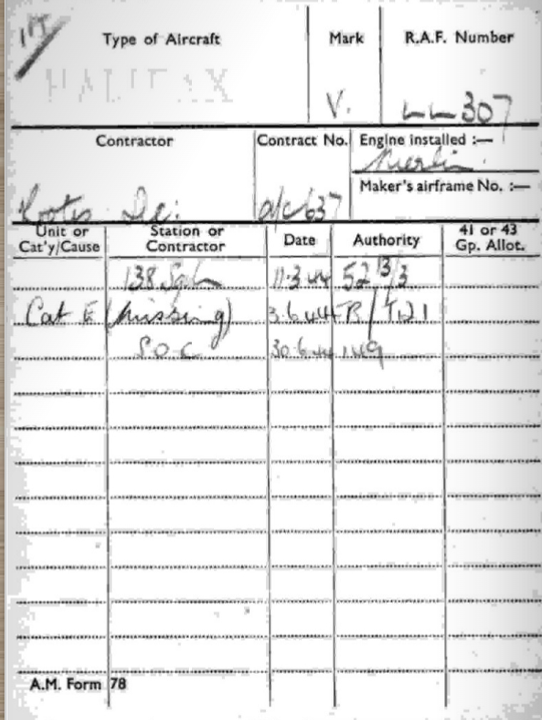 Type of Aircraft Mark R.A.F. Number
HALIFAX V. LL307
Contractor Contract No. Engine installed :—
Merlin
Maker's airframe No. :—
Rootes
Unit or Cat'y/Cause Station or Contractor Date Authority 41 or 43 Gp. Allot.
138 Sqdn 11.3.44 52 13/3
Cat E (missing) 3.6.44
S.O.C 30.6.44 149
A.M. Form 78